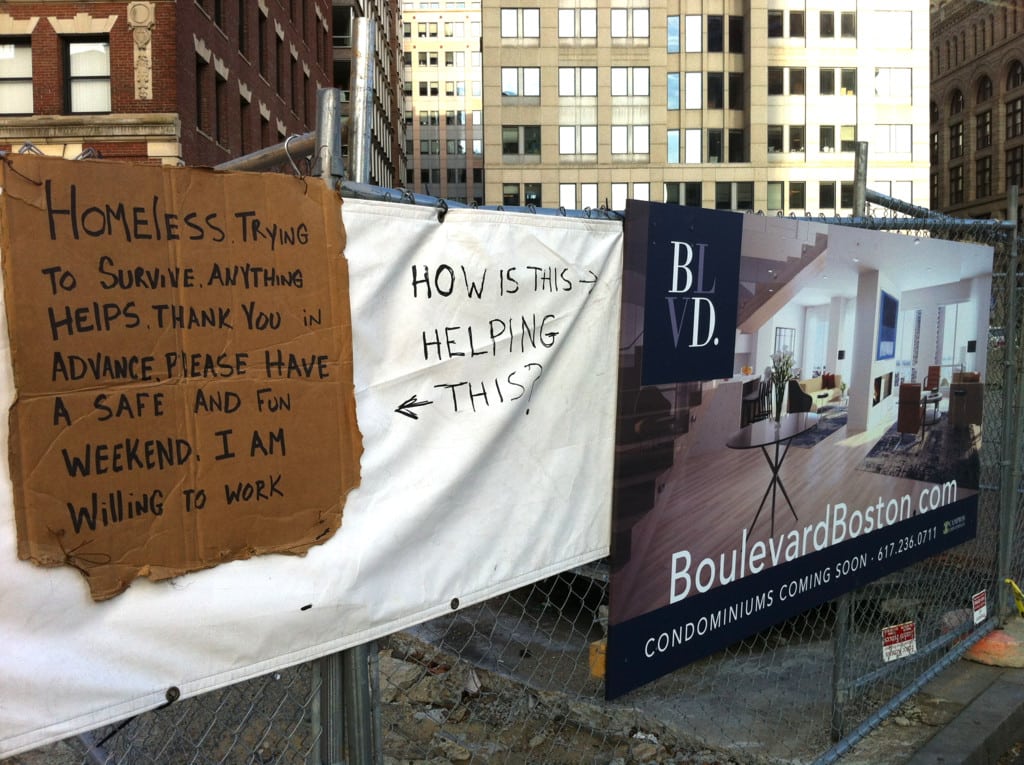 HOMELESS. TRYING
TO SURVIVE. ANYTHING
HELPS. THANK YOU IN
ADVANCE. PLEASE HAVE
A SAFE AND FUN
WEEKEND. I AM
WILLING TO WORK
HOW IS THIS →
HELPING
← THIS?
BL
VD.
BoulevardBoston.com
CONDOMINIUMS COMING SOON · 617.236.0711